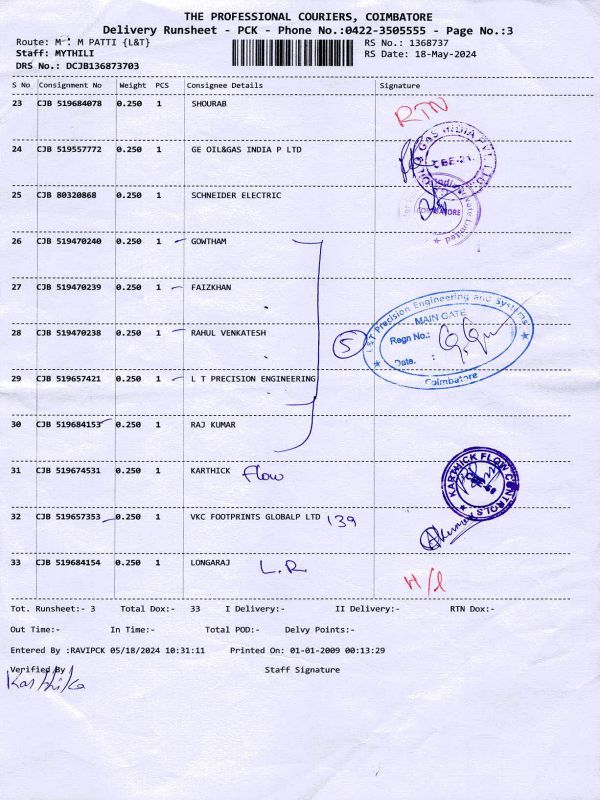 THE PROFESSIONAL COURIERS, COIMBATORE
Delivery Runsheet - PCK - Phone No.:0422-3505555 - Page No.:3
Route: M M PATTI {L&T} RS No.: 1368737
Staff: MYTHILI RS Date: 18-May-2024
DRS No.: DCJB136873703
S No Consignment No Weight PCS Consignee Details Signature
23 CJB 519684078 0.250 1 SHOURAB RTN
24 CJB 519557772 0.250 1 GE OIL&GAS INDIA P LTD
25 CJB 80320868 0.250 1 SCHNEIDER ELECTRIC
COIMBATORE
26 CJB 519470240 0.250 1 GOWTHAM
27 CJB 519470239 0.250 1 FAIZKHAN
L&T Precision Engineering and Systems
MAIN GATE
28 CJB 519470238 0.250 1 RAHUL VENKATESH 5 Regn No.:
Date. :
29 CJB 519657421 0.250 1 L T PRECISION ENGINEERING Coimbatore
30 CJB 519684153 0.250 1 RAJ KUMAR
31 CJB 519674531 0.250 1 KARTHICK Flow KARTHICK FLOW CONTROLS
32 CJB 519657353 0.250 1 VKC FOOTPRINTS GLOBALP LTD 139
33 CJB 519684154 0.250 1 LONGARAJ L.R
Tot. Runsheet:- 3 Total Dox:- 33 I Delivery:- II Delivery:- RTN Dox:-
Out Time:- In Time:- Total POD:- Delvy Points:-
Entered By :RAVIPCK 05/18/2024 10:31:11 Printed On: 01-01-2009 00:13:29
Verified By Staff Signature
Karthika